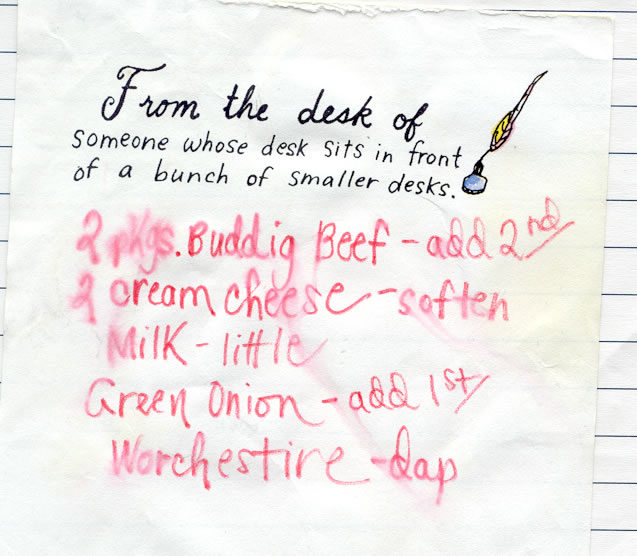 From the desk of
someone whose desk sits in front
of a bunch of smaller desks.
2 pkgs. Buddig Beef - add 2nd
2 cream cheese - soften
Milk - little
Green Onion - add 1st
Worchestire - dap